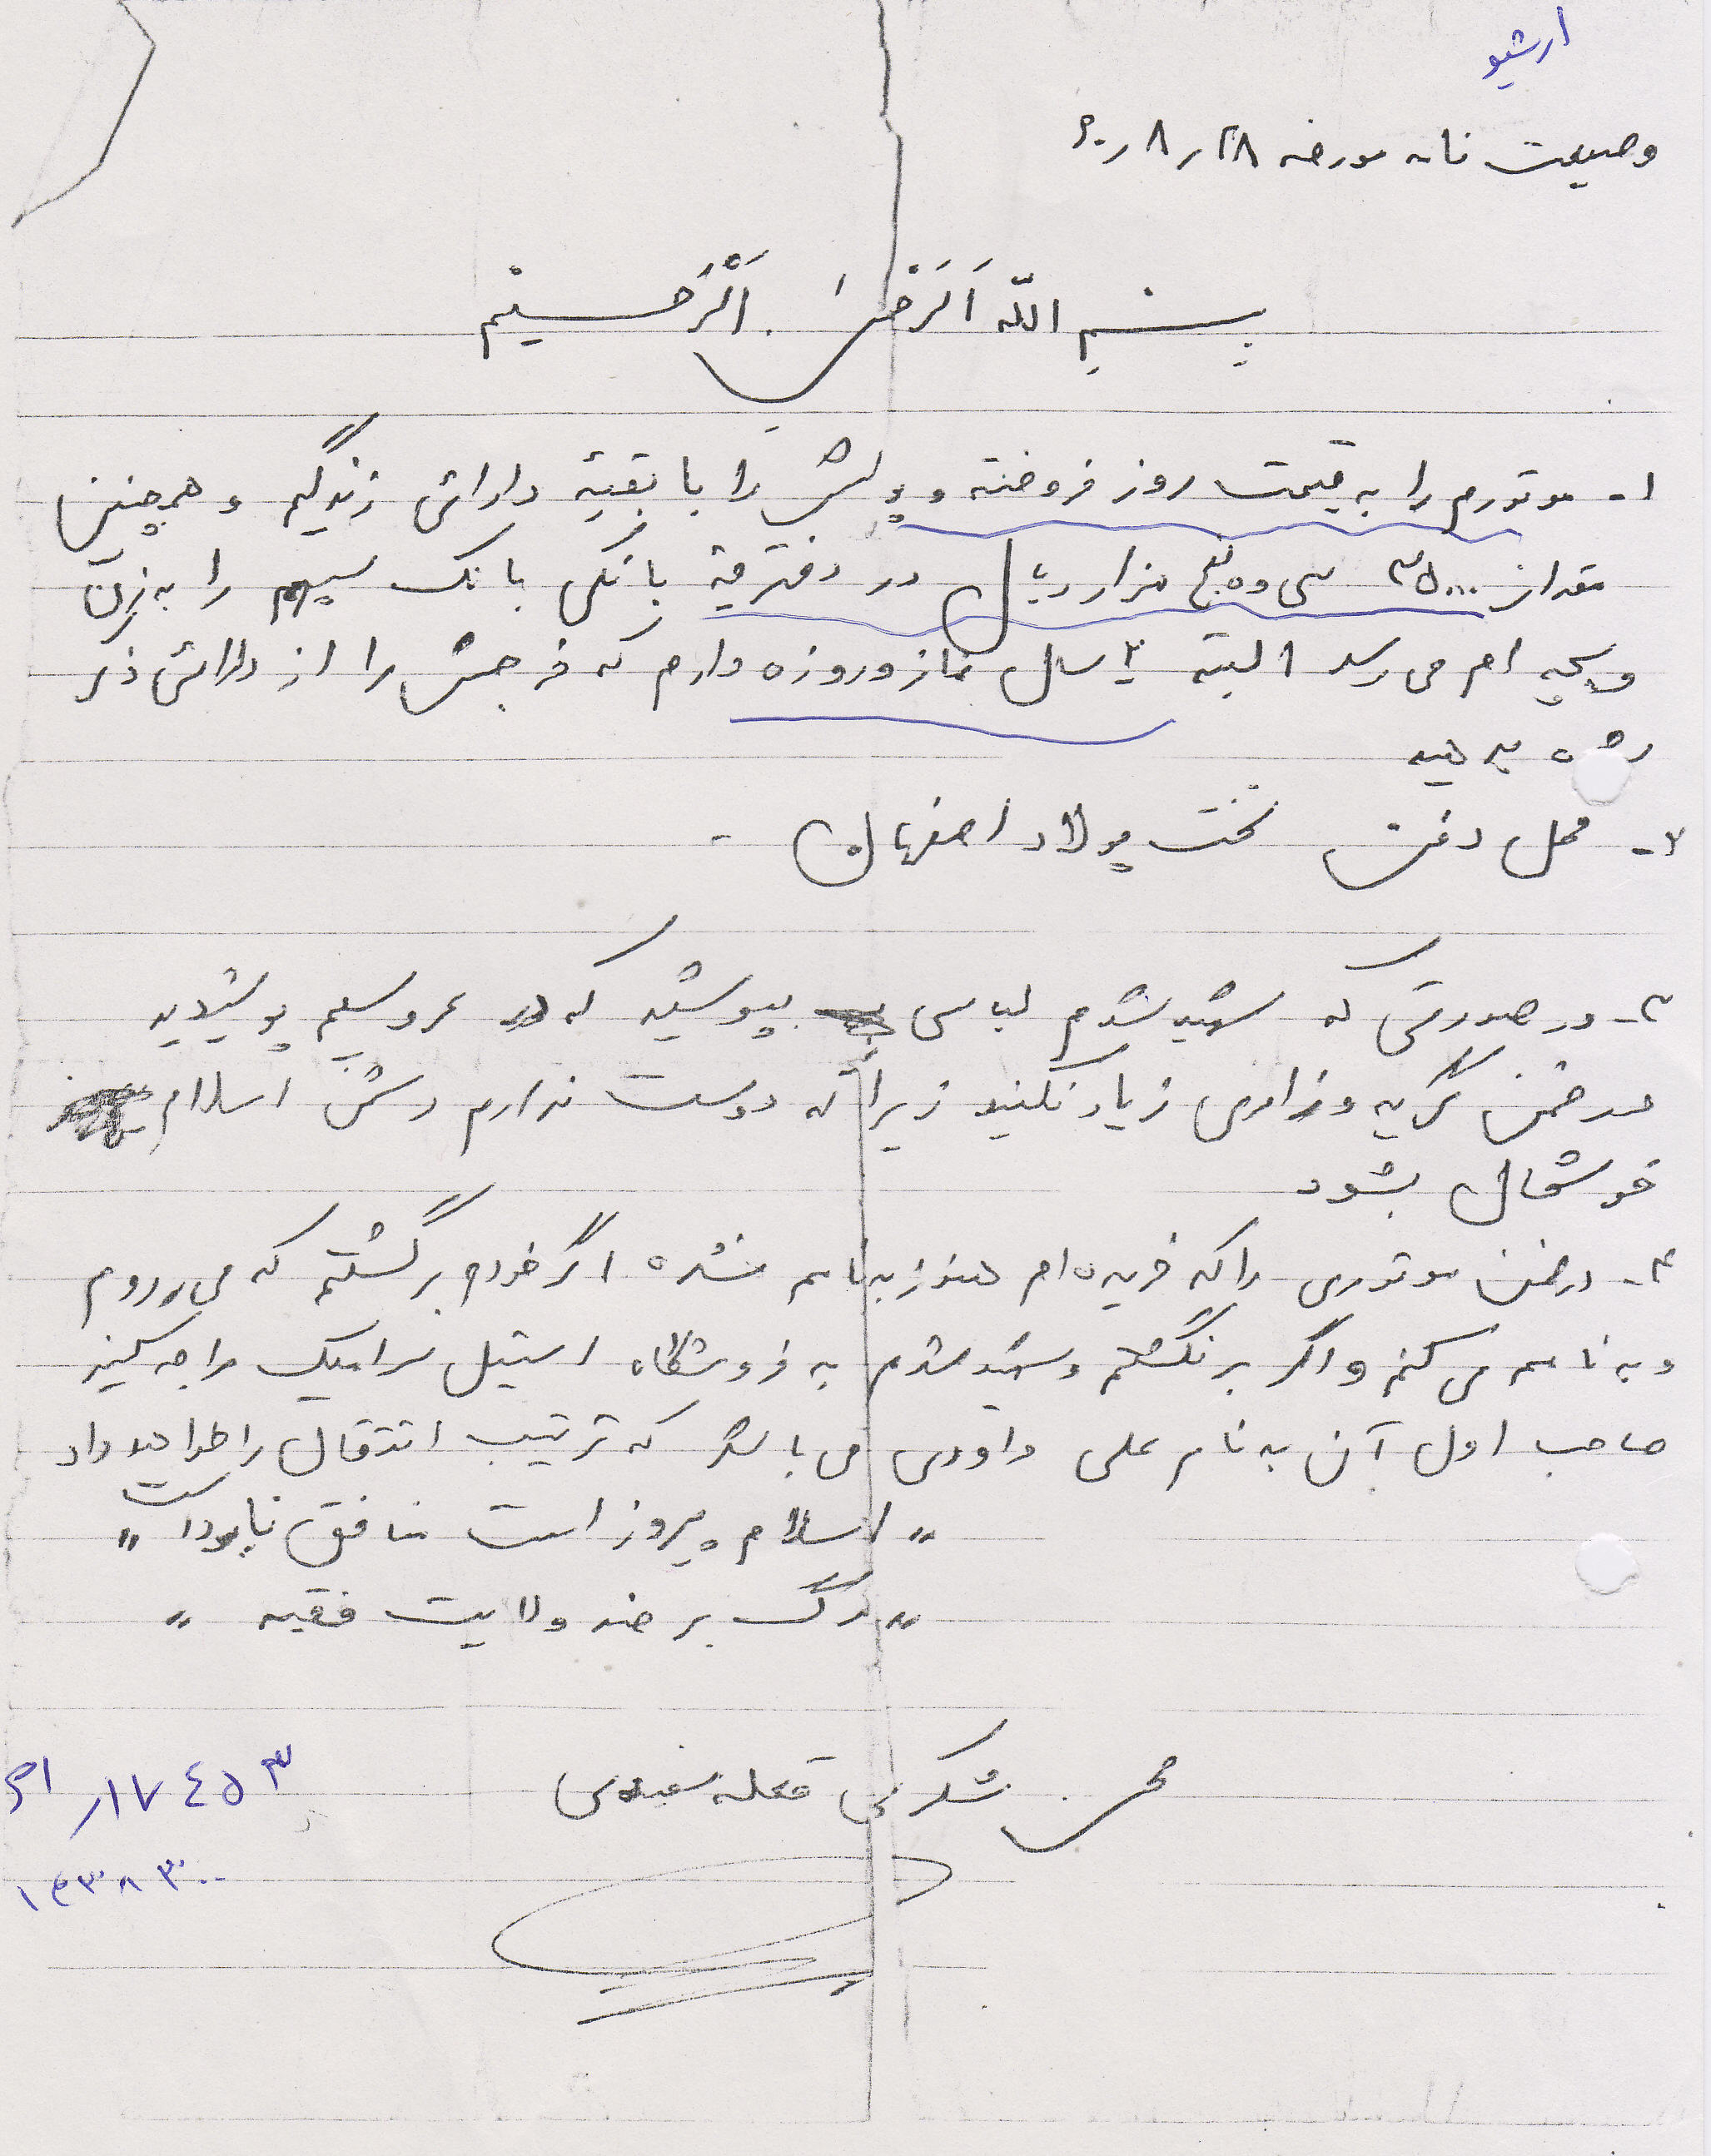 ارشیو
وصیت نامه مورخه ۲۸ر۸ر۶۰
بِسْمِ اللّه اَلرَحْمنِ اَلْرَحیْم
۱- موتورم را به قیمت روز فروخته و پولش را با بقیّه دارائی زندگیم و همچنین
مقدار ۳۵۰۰۰ سی و پنج هزار ریال در دفترچه بانکی بانک سپهر را به زن
و بچه ام می رسد البته ۲ سال نماز و روزه دارم که خرجش را از دارائی ذکر
شده بدهید
۲- محل دفن تخت پولاد اصفهان -
۳- در صورتی که شهید شدم لباسی بپوشید که در عروسیم پوشیدید
در ضمن گریه و زاری زیاد نکنید زیرا که دوست ندارم دشمن اسلام
خوشحال بشود
۴- در ضمن موتوری را که خریده ام هنوز به نامم نشده اگر خودم برگشتم که می روم
و به نامم می کنم و اگر برنگشتم و شهید شدم به فروشگاه استیل سرامیک مراجعه کنید
صاحب اول آن به نام علی داودی می باشد که ترتیب انتقال را خواهد داد
" اسلام پیروز است منافق نابود است "
" مرگ بر ضد ولایت فقیه "
محسن شکرانی قلعه سفیدی
۱۷۴۵۳ر
۱۶۳۸۳۰۰